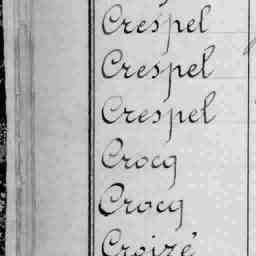 Crespel
Crespel
Crespel
Crocq
Crocq
Croizé